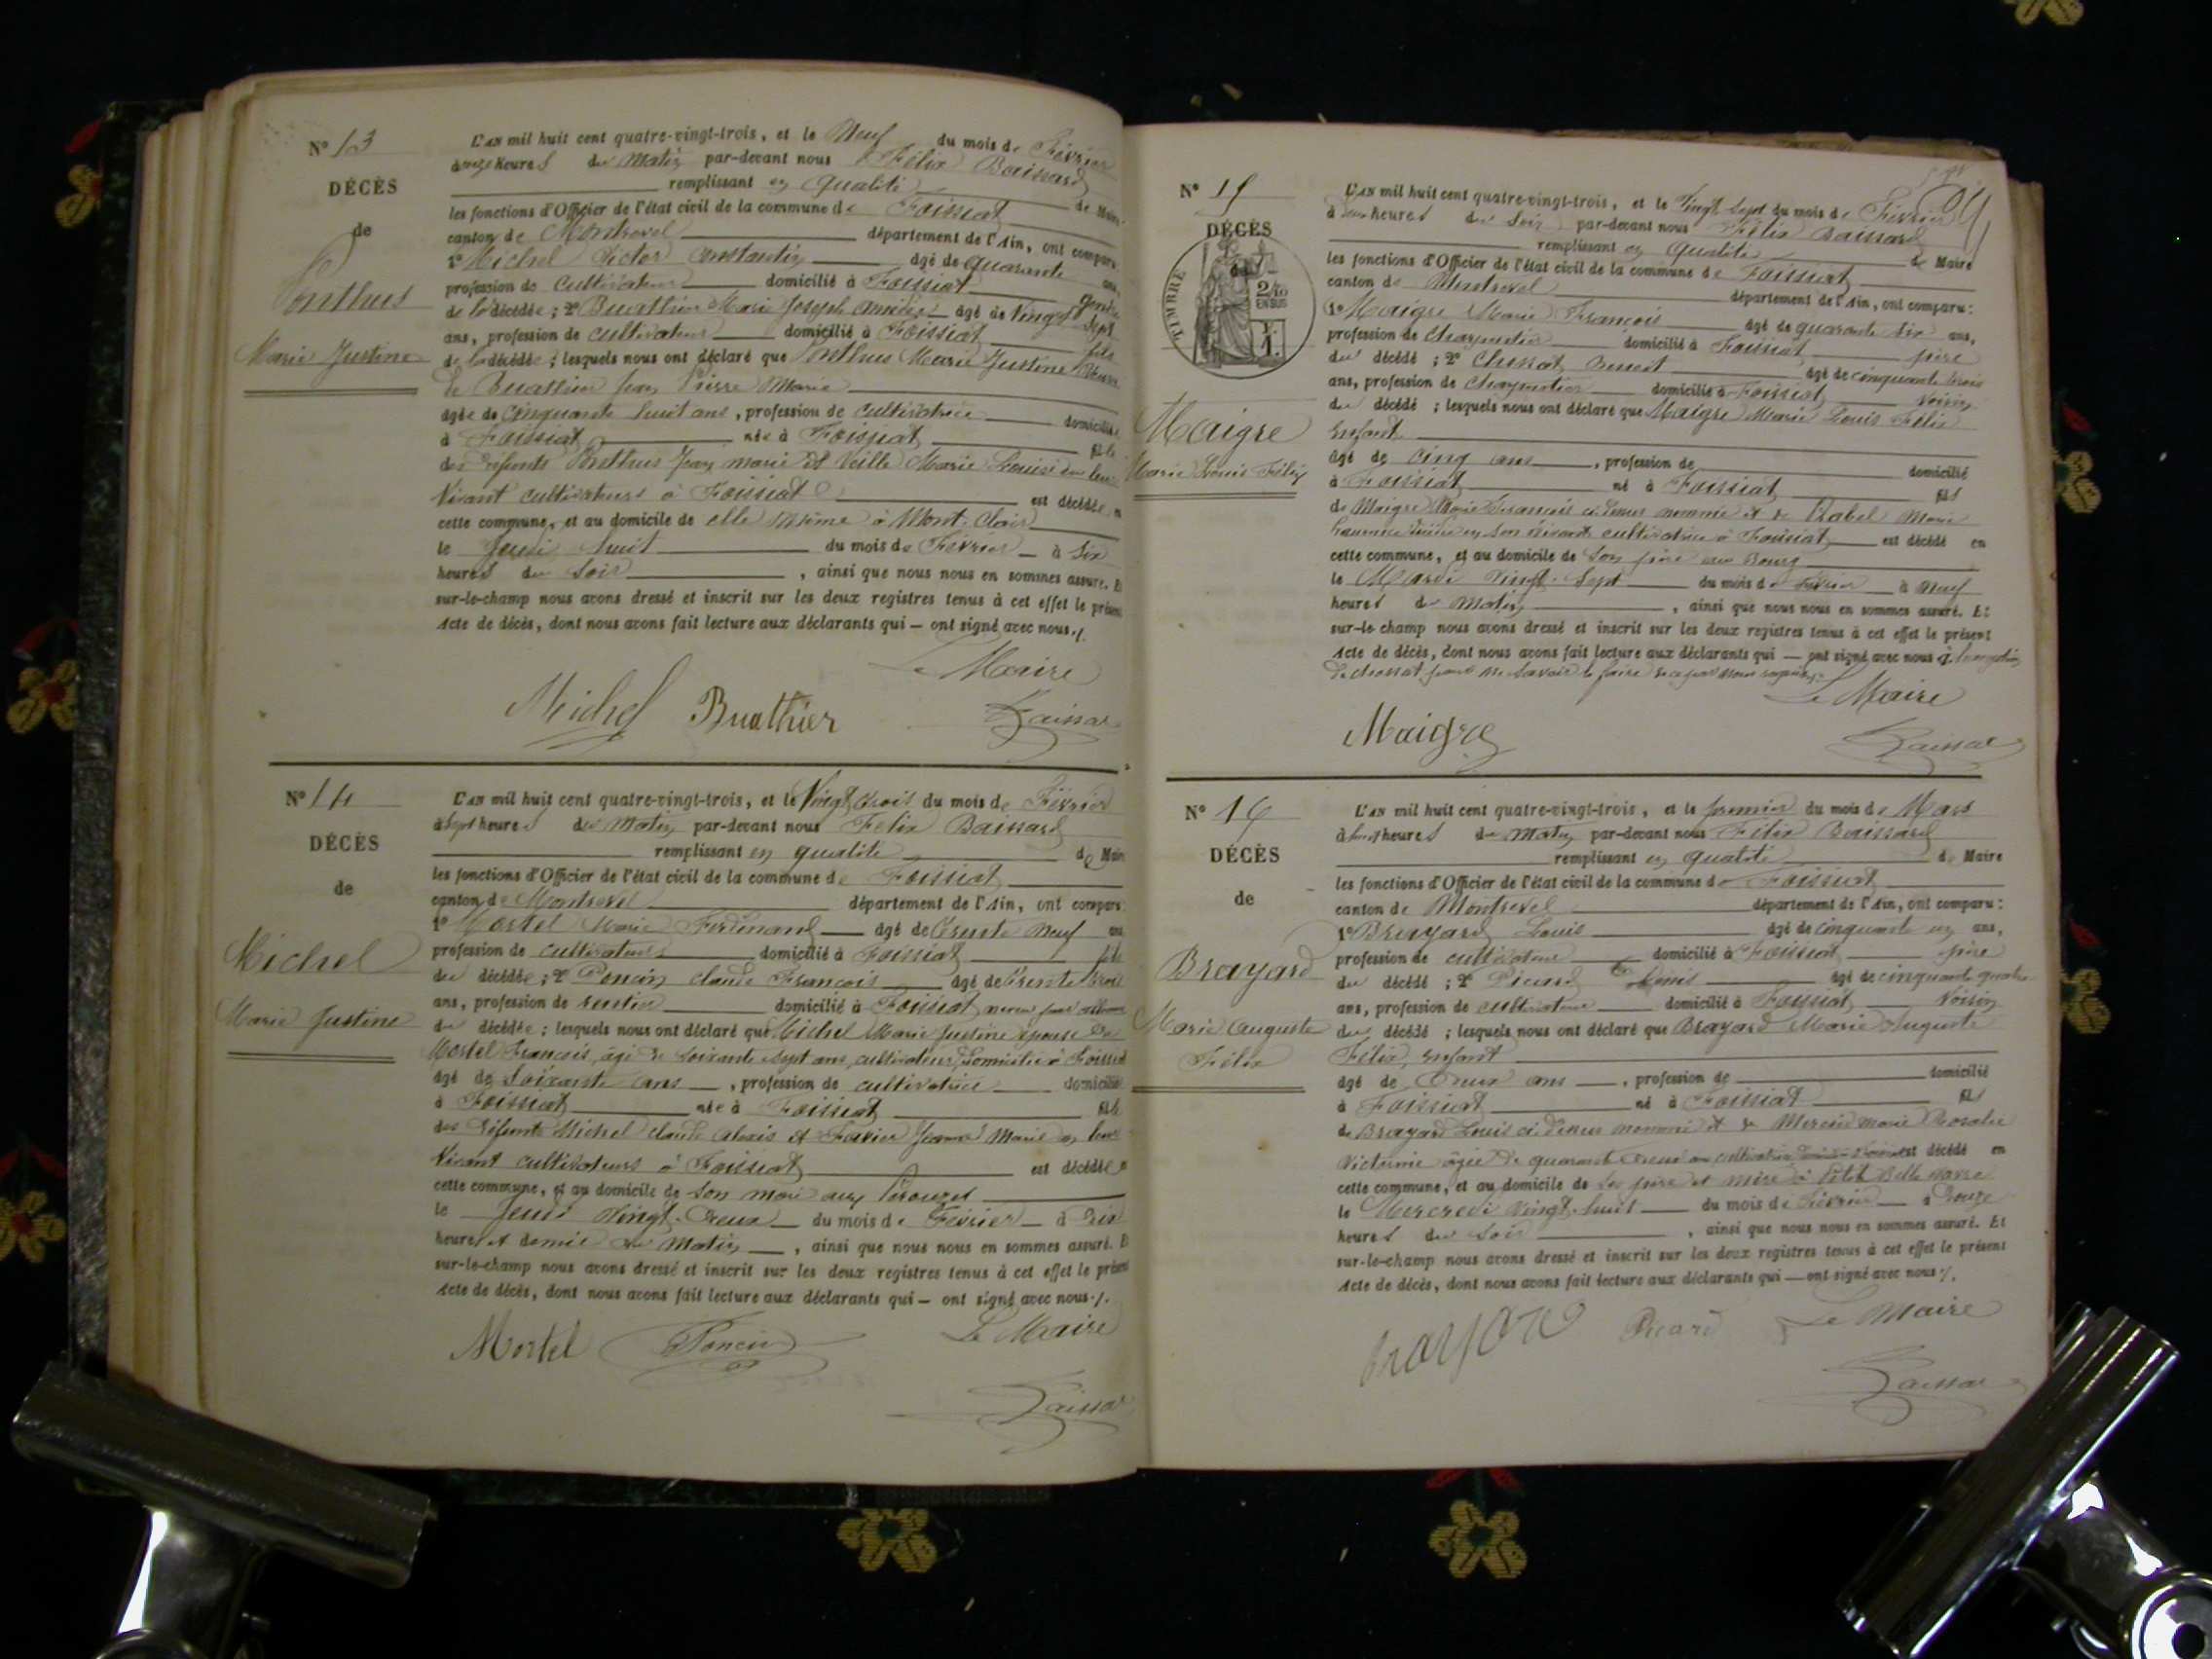 N° 13
DÉCÈS
de
Ponthus
Marie Justine
L'AN mil huit cent quatre-vingt-trois, et le Neuf du mois de Février
à onze heures du Matin par-devant nous Félix Baissard
remplissant en qualité de Maire
les fonctions d'Officier de l'état civil de la commune de Foissiat
canton de Montrevel département de l'Ain, ont comparu
1° Michel Victor Constantin âgé de quarante ans,
profession de cultivateur domicilié à Foissiat gendre
de la décédée ; 2° Buathier Marie Joseph Amédée âgé de vingt sept
ans, profession de cultivateur domicilié à Foissiat fils
de la décédée ; lesquels nous ont déclaré que Ponthus Marie Justine Veuve
de Buathier Jean Pierre Marie
âgée de cinquante huit ans, profession de cultivatrice domiciliée
à Foissiat née à Foissiat fille
des défunts Ponthus Jean Marie et Veille Marie Louise en leur
vivant cultivateurs à Foissiat est décédée en
cette commune, et au domicile de elle même à Mont-Clair
le Jeudi huit du mois de Février à six
heures du soir , ainsi que nous nous en sommes assuré. Et
sur-le-champ nous avons dressé et inscrit sur les deux registres tenus à cet effet le présent
Acte de décès, dont nous avons fait lecture aux déclarants qui — ont signé avec nous ./.
Le Maire
Michel Buathier Baissard
N° 14
DÉCÈS
de
Michel
Marie Justine
L'AN mil huit cent quatre-vingt-trois, et le Vingt trois du mois de Février
à sept heures du Matin par-devant nous Félix Baissard
remplissant en qualité de Maire
les fonctions d'Officier de l'état civil de la commune de Foissiat
canton de Montrevel département de l'Ain, ont comparu
1° Mortel Marie Ferdinand âgé de trente neuf ans
profession de cultivateur domicilié à Foissiat fils
de la décédée ; 2° Poncin Claude François âgé de trente trois
ans, profession de rentier domicilié à Foissiat neveu par alliance
de la décédée ; lesquels nous ont déclaré que Michel Marie Justine épouse de
Mortel François, âgé de soixante sept ans, cultivateur, domicilié à Foissiat
âgé de soixante ans , profession de cultivatrice domiciliée
à Foissiat née à Foissiat fille
des défunts Michel Claude Alexis et Favier Jeanne Marie en leur
vivant cultivateurs à Foissiat est décédée en
cette commune, et au domicile de son mari aux
le Jeudi vingt-deux du mois de Février à dix
heures et demie du Matin , ainsi que nous nous en sommes assuré. Et
sur-le-champ nous avons dressé et inscrit sur les deux registres tenus à cet effet le présent
Acte de décès, dont nous avons fait lecture aux déclarants qui — ont signé avec nous ./.
Le Maire
Mortel Poncin
Baissard
N° 15
DÉCÈS
de
TIMBRE
2/10
EN SUS
Maigre
Marie Louis Félix
L'AN mil huit cent quatre-vingt-trois, et le Vingt Sept du mois de Février
à deux heures du Soir par-devant nous Félix Baissard
remplissant en qualité de Maire
les fonctions d'Officier de l'état civil de la commune de Foissiat
canton de Montrevel département de l'Ain, ont comparu :
1° Maigre Marie François âgé de quarante six ans,
profession de charpentier domicilié à Foissiat père
du décédé ; 2° Chossat Benoit âgé de cinquante trois
ans, profession de charpentier domicilié à Foissiat voisin
du décédé ; lesquels nous ont déclaré que Maigre Marie Louis Félix
Enfant
âgé de cinq ans , profession de domicilié
à Foissiat né à Foissiat fils
de Maigre Marie François ci-dessus nommé et de Rabel Marie
en son vivant cultivatrice à Foissiat est décédé en
cette commune, et au domicile de son père au Bourg
le Mardi vingt-sept du mois de Février à neuf
heures du Matin , ainsi que nous nous en sommes assuré. Et
sur-le-champ nous avons dressé et inscrit sur les deux registres tenus à cet effet le présent
Acte de décès, dont nous avons fait lecture aux déclarants qui — ont signé avec nous à l'exception
de Chossat pour ne savoir le faire de ce par nous requis ./.
Le Maire
Maigre Baissard
N° 16
DÉCÈS
de
Brayard
Marie Auguste
Félix
L'AN mil huit cent quatre-vingt-trois, et le premier du mois de Mars
à heures du Matin par-devant nous Félix Baissard
remplissant en qualité de Maire
les fonctions d'Officier de l'état civil de la commune de Foissiat
canton de Montrevel département de l'Ain, ont comparu :
1° Brayard Louis âgé de cinquante un ans,
profession de cultivateur domicilié à Foissiat père
du décédé ; 2° Picard Denis âgé de cinquante quatre
ans, profession de cultivateur domicilié à Foissiat voisin
du décédé ; lesquels nous ont déclaré que Brayard Marie Auguste
Félix, Enfant
âgé de deux ans , profession de domicilié
à Foissiat né à Foissiat fils
de Brayard Louis ci-dessus nommé et de Mercier Marie Rosalie
Victorine âgée de quarante deux ans cultivatrice est décédé en
cette commune, et au domicile de ses père et mère à Petit Belle vavre
le Mercredi vingt-huit du mois de Février à onze
heures du soir , ainsi que nous nous en sommes assuré. Et
sur-le-champ nous avons dressé et inscrit sur les deux registres tenus à cet effet le présent
Acte de décès, dont nous avons fait lecture aux déclarants qui — ont signé avec nous ./.
Brayard Picard Le Maire
Baissard